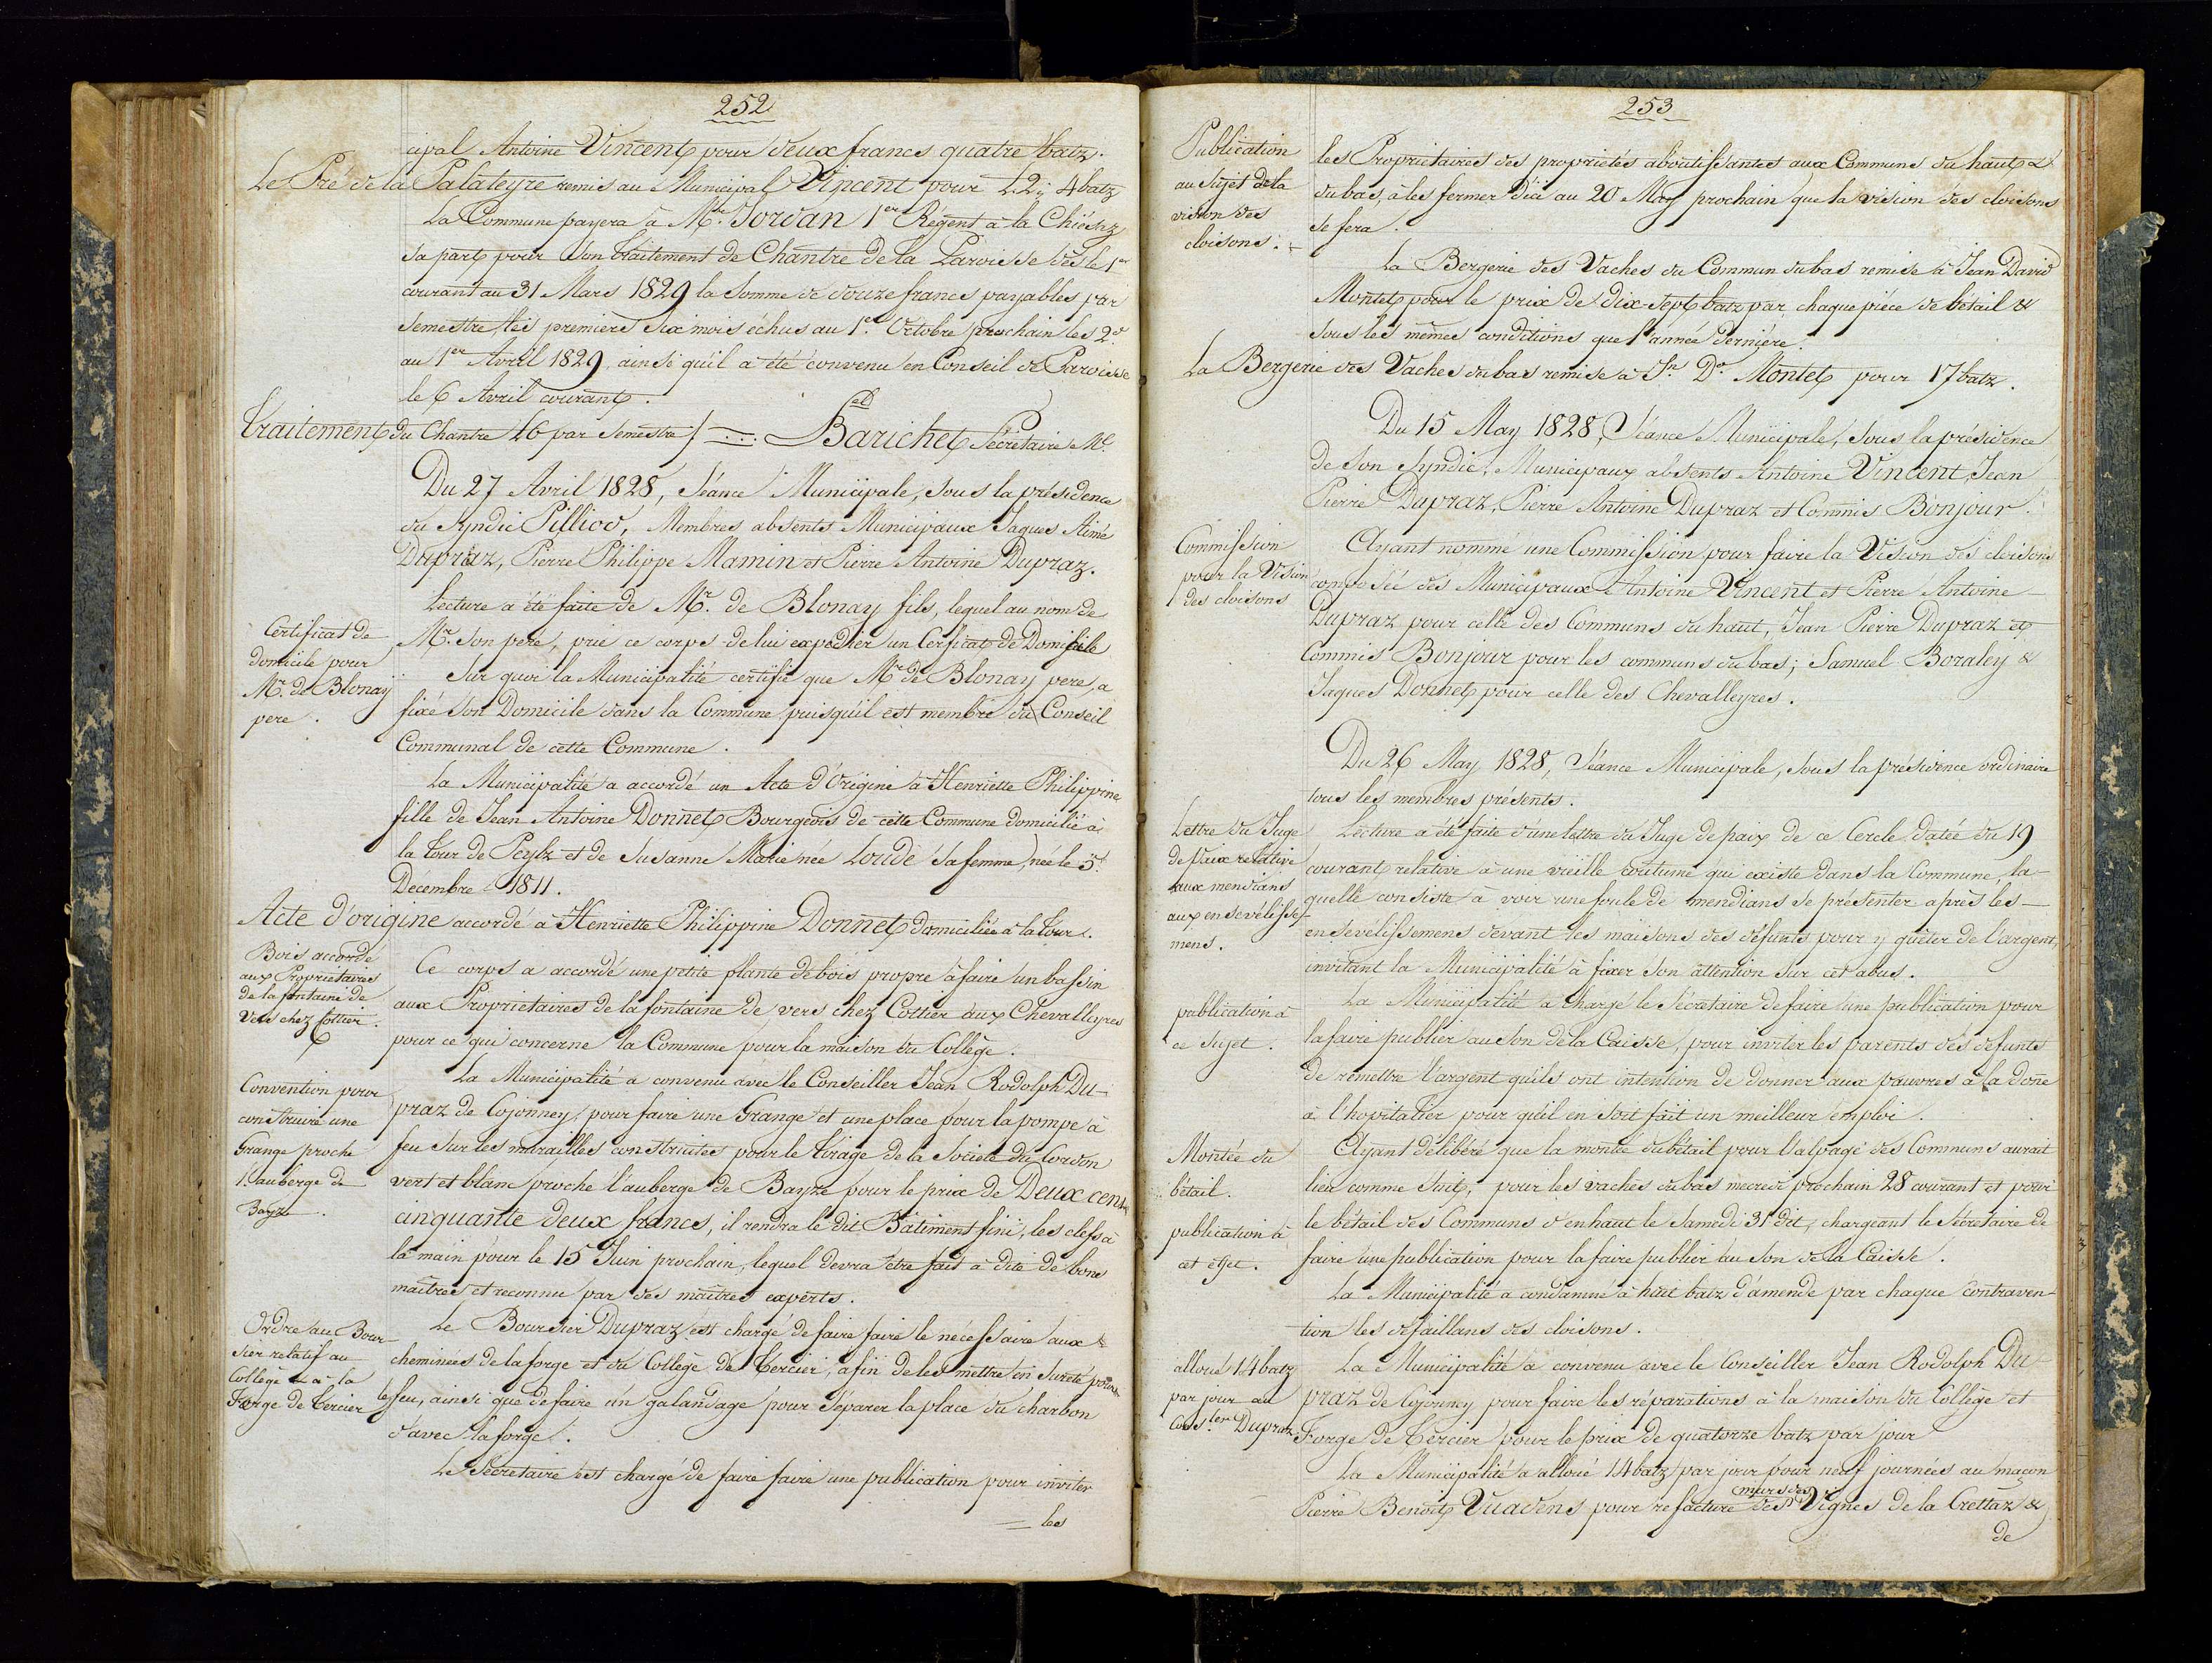 252
cipal Antoine Vincent pour deux francs quatre batz.
Le Pré de la Palateyre remis au Municipal Vincent pour L2,, 4 batz
La Commune payera à Mr. Jordan 1er Régent à la Chiésaz
sa part pour son traitement de Chantre de la Paroisse dès le 1er
courant au 31 Mars 1829 la Somme de douze francs payables par
semestre les premiers six mois échus au 1er Octobre prochain les 2ds
au 1er Avril 1829, ainsi qu'il a été convenu en Conseil de Paroisse
le 6 Avril courant.
Traitement du Chantre L6 par Semestre Barichet Secrétaire Ml.
Du 27 Avril 1828, Séance Municipale, sous la présidence
du Syndic Pilliod, Membres absents Municipaux Jaques Aimé
Dupraz, Pierre Philippe Mamin et Pierre Antoine Dupraz.
Lecture a été faite de Mr. de Blonay fils, lequel au nom de
Certificat de
domicile pour
Mr. de Blonay
pere.
Mr. son pere, prie ce corps de lui expedier un Cerficat de Domicile
Sur quoi la Municipalité certifie que Mr de Blonay pere, a
fixé son Domicile dans la Commune puisqu'il est membre du Conseil
Communal de cette Commune.
La Municipalité a accordé un Acte d'Origine à Henriette Philippine
fille de Jean Antoine Donnet Bourgeois de cette Commune domicilié à
la Tour de Peylz et de Susanne Marie née Loude sa femme, née le 3e
Décembre 1811.
Acte d'origine accordé à Henriette Philippine Donnet domiciliée à la Tour.
Bois accordé
aux Proprietaires
de la fontaine de
Vers chez Cottier.
Ce corps a accordé une petite plante de bois propre à faire un bassin
aux Proprietaires de la fontaine de vers chez Cottier aux Chevalleyres
pour ce qui concerne la Commune pour la maison du Collège.
Convention pour
construire une
Grange proche
l'auberge de
Bayze.
La Municipalité a convenu avec le Conseiller Jean Rodolph Du-
praz de Cojonney, pour faire une Grange et une place pour la pompe à
feu sur les murailles construites pour le tirage de la Societé du Cordon
vert et blanc proche l'auberge de Bayze pour le prix de Deux cent
cinquante deux francs, il rendra le dit Bâtiment fini, les clefs à
la main pour le 15 Juin prochain, lequel devra être fait à dite de bons
maîtres et reconnu par des maîtres experts.
Ordre au Bour-
sier relatif au
Collège & à la
Forge de Tercier
Le Boursier Dupraz est chargé de faire faire le nécessaire aux
cheminées de la forge et du Collège de Tercier, afin de les mettre en sureté pour
le feu, ainsi que de faire un galandage pour séparer la place du charbon
d'avec la forge.
Le Secretaire est chargé de faire faire une publication pour inviter
les
253
Publication
au sujet de la
vision des
cloisons.
les Proprietaires des propriétés aboutissantes aux Communs du haut &
du bas, à les fermer d'ici au 20 May prochain que la vision des cloisons
se fera.
La Bergerie des Vaches du Commun du bas remise à Jean David
Montet pour le prix de dix-sept batz par chaque pièce de bétail &
sous les mêmes conditions que l'année Dernière.
La Bergerie des Vaches du bas remise à Jn. Dd. Montet pour 17 batz.
Du 15 May 1828, Séance Municipale, sous la présidence
de son Syndic, Municipaux absents Antoine Vincent, Jean
Pierre Dupraz, Pierre Antoine Dupraz et Commis Bonjour.
Commission
pour la Vision
des cloisons
Ayant nommé une Commission pour faire la Vision des cloisons
composée des Municipaux Antoine Vincent et Pierre Antoine
Dupraz pour celle des Communs du haut, Jean Pierre Dupraz et
Commis Bonjour pour les communs du bas; Samuel Boraley &
Jaques Donnet pour celle des Chevalleyres.
Du 26 May 1828, Séance Municipale, sous la présidence ordinaire
tous les membres présents.
Lettre du Juge
de Paix relative
aux mendians
aux ensevélisse-
mens.
Lecture a été faite d'une lettre du Juge de paix de ce Cercle datée du 19
courant, relative à une vieille coutume qui existe dans la Commune, la-
quelle consiste à voir une foule de mendians se présenter après les
ensévélissemens devant les maisons des défunts pour y quêter de l'argent,
invitant la Municipalité à fixer son attention sur cet abus.
publication à
ce sujet.
La Municipalité a chargé le Sécrétaire de faire une publication pour
la faire publier au son de la Caisse, pour inviter les parents des defunts
de remettre l'argent qu'ils ont intention de donner aux pauvres à la done
à l'hopitalier pour qu'il en soit fait un meilleur emploi.
Montée du
bétail.
publication à
cet effet.
Ayant délibéré que la montée du bétail pour l'alpage des Communs aurait
lieu comme suit, pour les vaches du bas mecredi prochain 28 courant et pour
le bétail des Communs d'enhaut le Samedi 31 dit, chargeant le Sécretaire de
faire une publication pour la faire publier au son de la Caisse.
La Municipalité a condamné à huit batz d'amende par chaque contraven-
tion les défaillans des cloisons.
alloué 14 batz
par jour au
Consler Dupraz
La Municipalité a convenu avec le Conseiller Jean Rodolph Du-
praz de Cojonney pour faire les réparations à la maison du Collège et
Forge de Tercier pour le prix de quatorze batz par jour
La Municipalité a alloué 14 batz par jour pour neuf journées au maçon
murs des
Pierre Benoit Vuadens pour refacture des Vignes de la Crettaz &
de